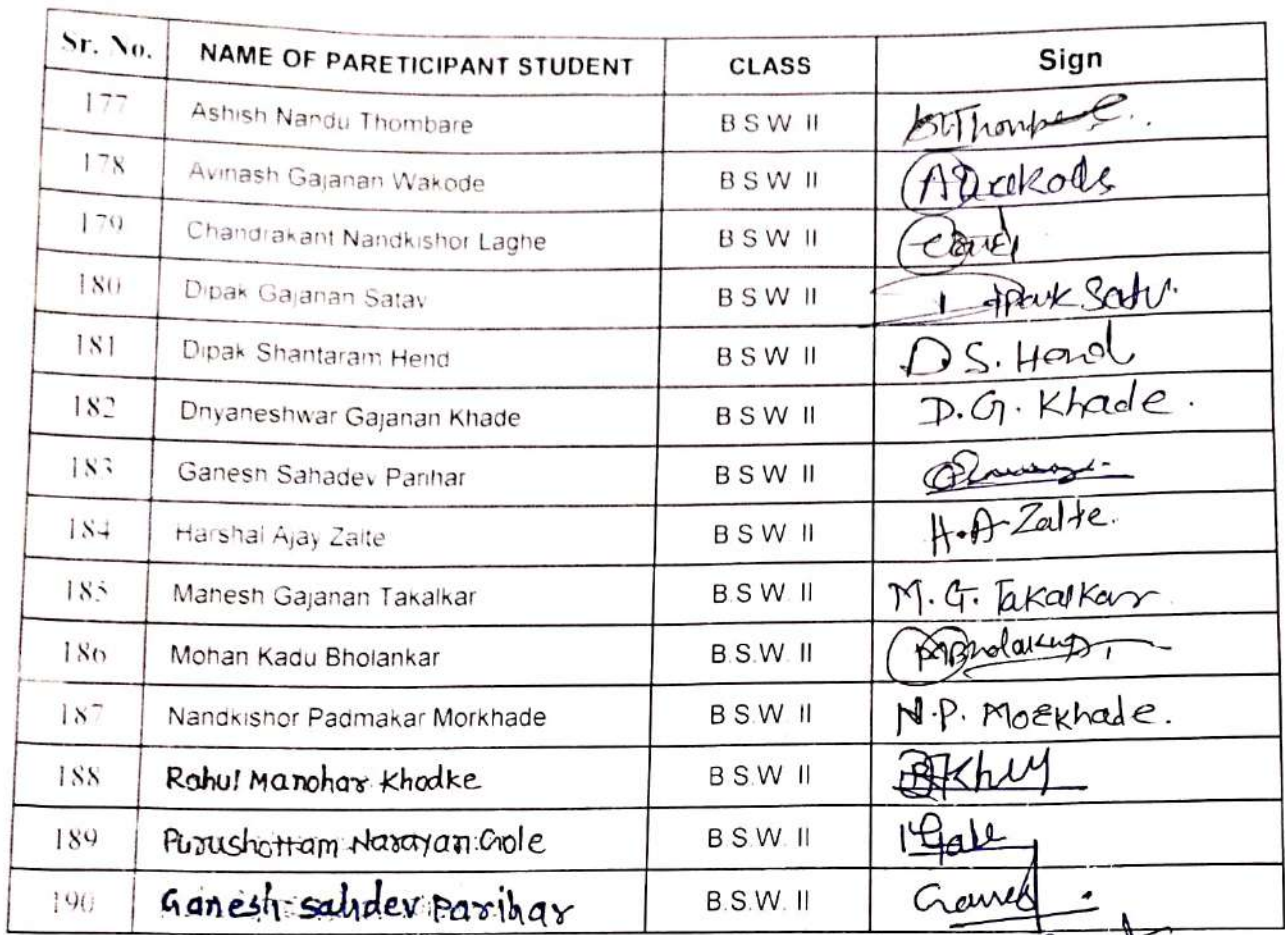 Sr. No. NAME OF PARETICIPANT STUDENT CLASS Sign
177 Ashish Nandu Thombare B S W II
178 Avinash Gajanan Wakode B S W II
179 Chandrakant Nandkishor Laghe B S W II
180 Dipak Gajanan Satav B S W II
181 Dipak Shantaram Hend B S W II D S. Hend
182 Dnyaneshwar Gajanan Khade B S W II D. G. Khade.
183 Ganesh Sahadev Parihar B S W II
184 Harshal Ajay Zalte B S W II H.A Zalte.
185 Manesh Gajanan Takalkar B.S W. II M. G. Takalkar
186 Mohan Kadu Bholankar B.S.W. II
187 Nandkishor Padmakar Morkhade B S.W. II N.P. Morkhade.
188 Rahul Manohar Khodke B S.W II
189 Purushottam Narayan Gole B.S.W. II
190 Ganesh sahdev Parihar B.S.W. II